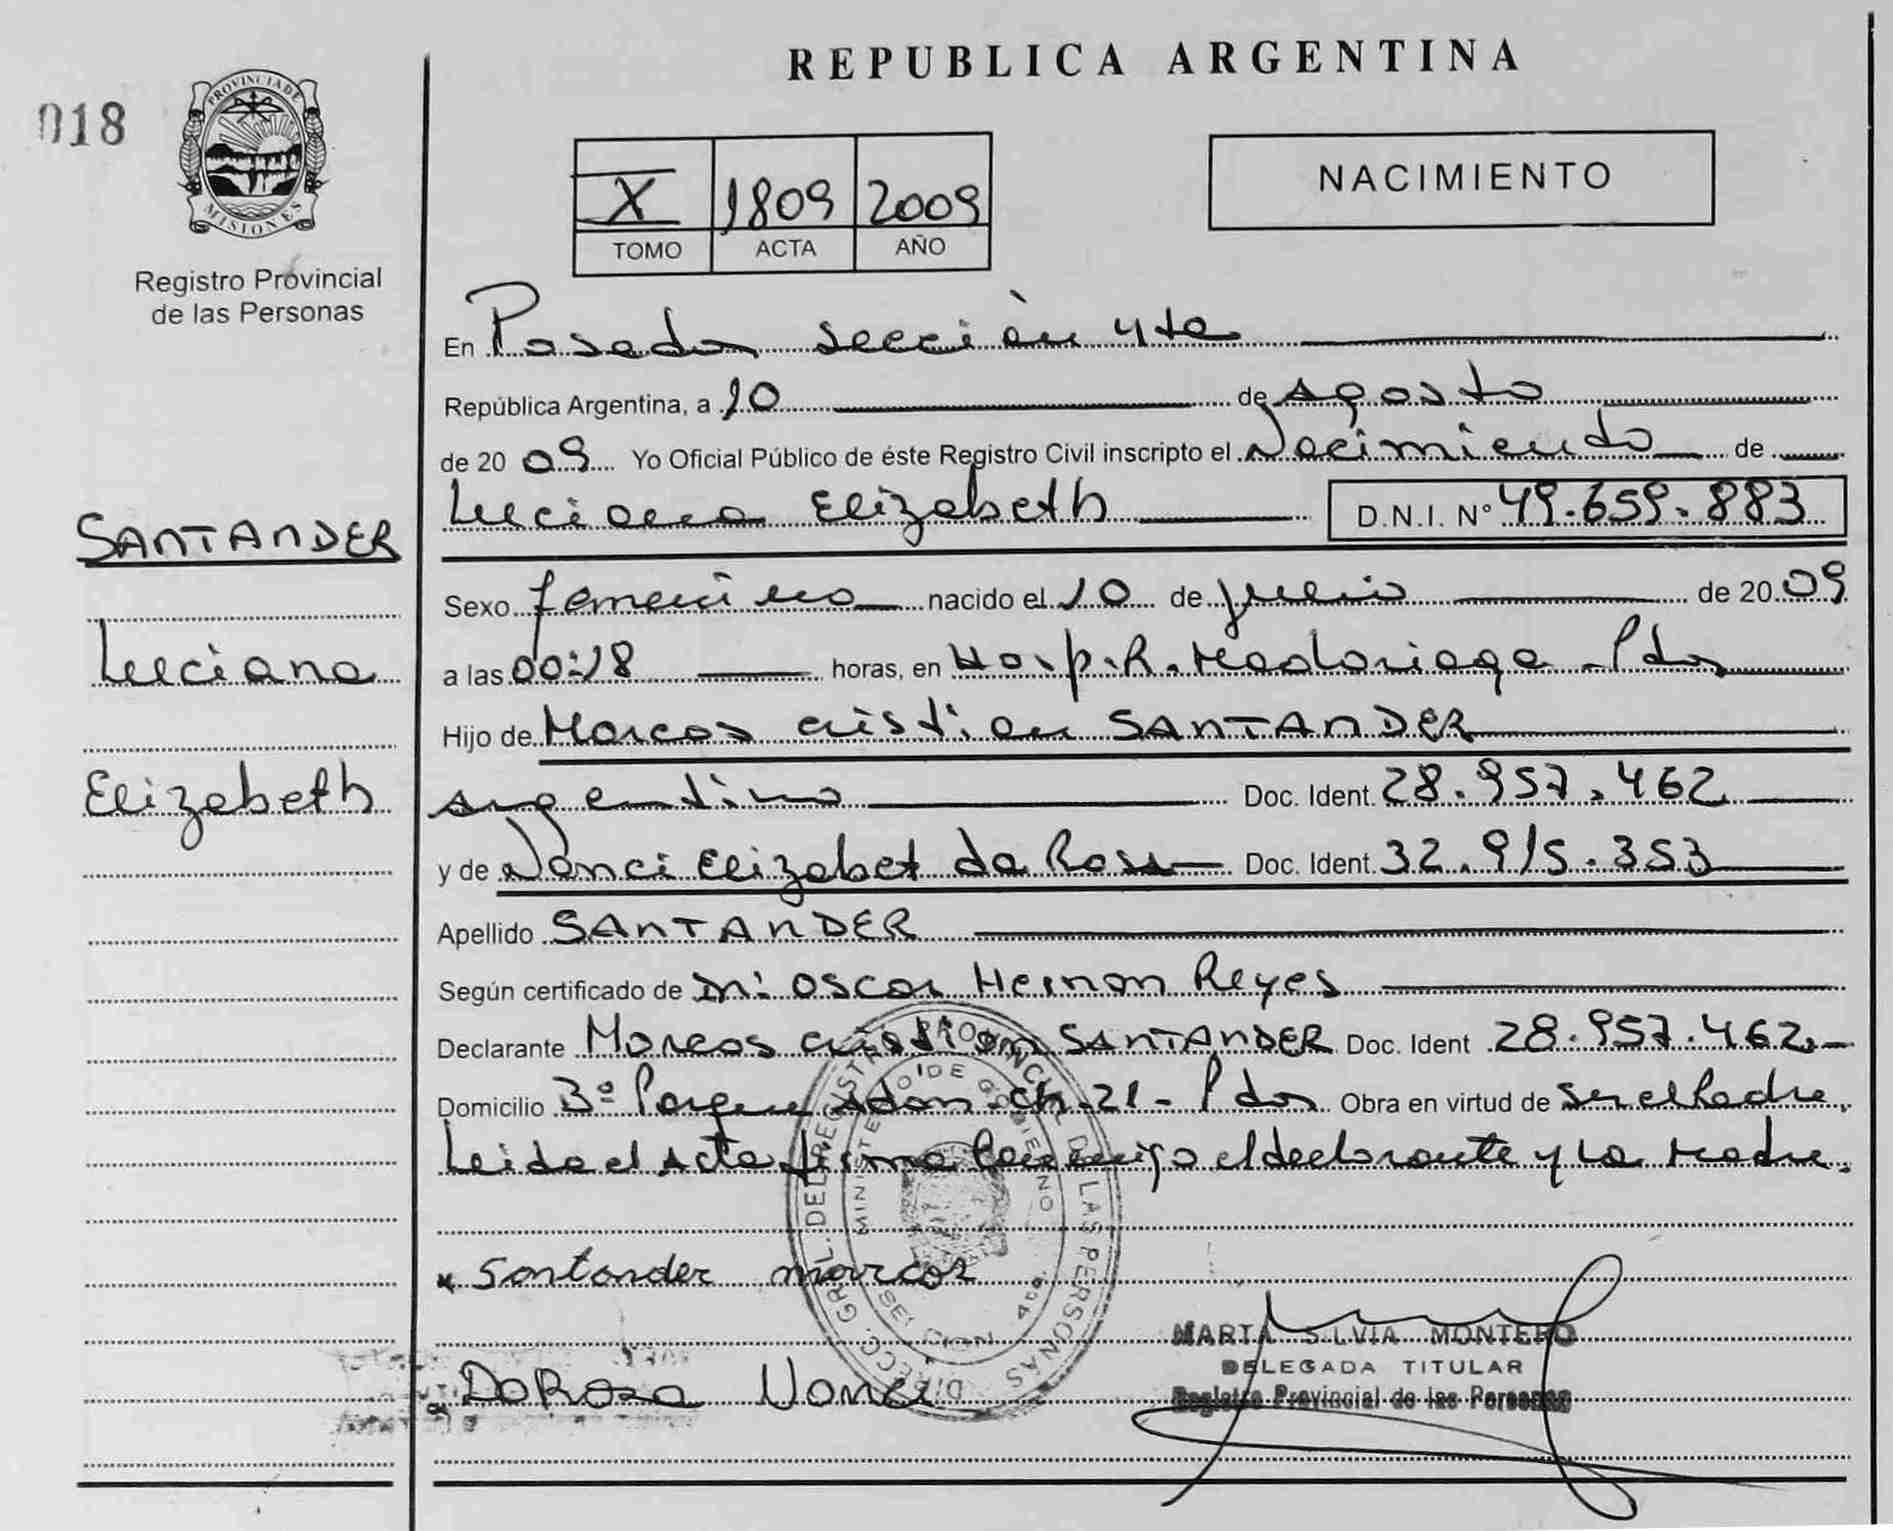 REPUBLICA ARGENTINA
018
PROVINCIA DE
MISIONES
Registro Provincial
de las Personas
X 1809 2009
TOMO ACTA AÑO
NACIMIENTO
En Posadas sección 4ta
República Argentina, a 10 de Agosto
de 2009 Yo Oficial Público de éste Registro Civil inscripto el Nacimiento de
Luciana Elizabeth D.N.I. N° 49.659.883
SANTANDER
Luciana
Elizabeth
Sexo femenino nacido el 10 de Julio de 2009
a las 00:18 horas, en Hosp. R. Madariaga - Pdas
Hijo de Marcos Cristian SANTANDER
argentino Doc. Ident. 28.957.462
y de Nanci Elizabet da Rosa Doc. Ident. 32.915.353
Apellido SANTANDER
Según certificado de Dr: Oscar Hernan Reyes
Declarante Marcos Cristian SANTANDER Doc. Ident 28.957.462
Domicilio 3º Parque Adam - Ch. 21 - Pdas Obra en virtud de ser el Padre.
Leida el Acta firma conmigo el declarante y la Madre.
Santander marcos
Da Rosa Nanci
DIRECC. GRAL. DEL REGISTRO PROVINCIAL DE LAS PERSONAS
MINISTERIO DE GOBIERNO
SECCION 4ta.
MARTA SILVIA MONTERO
DELEGADA TITULAR
Registro Provincial de las Personas